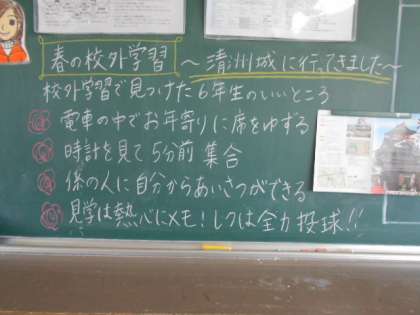 春の校外学習 ～清洲城に行ってきました～
校外学習で見つけた6年生のいいところ
電車の中でお年寄りに席をゆずる
時計を見て5分前集合
係の人に自分からあいさつができる
見学は熱心にメモ！レクは全力投球!!